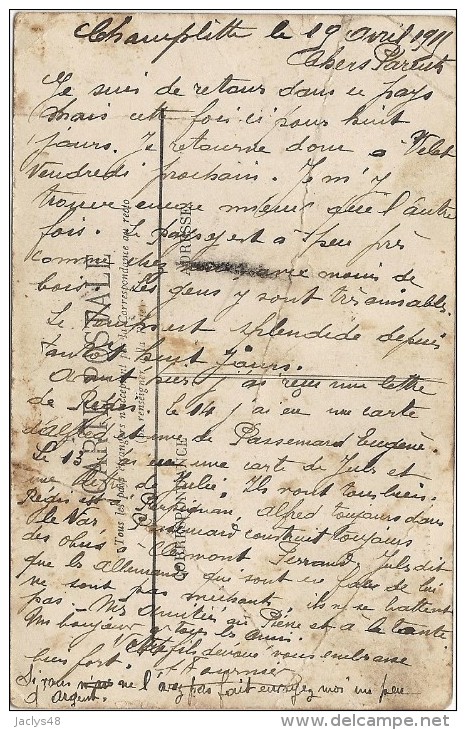 Champlitte le 19 avril 1915
Chers Parents
Je suis de retour dans ce pays
mais cette fois ci pour huit
jours. Je retourne donc à Velet
Vendredi prochain. Je m'y
trouve encore mieux que l'autre
fois. Le pays est à peu près
comme chez moins de
bois. Les gens y sont très aimables.
Le temps est splendide depuis
tantôt huit jours.
Avant hier j'ai reçu une lettre
de Régis, le 14 j'ai eu une carte
d'Alfred et une de Passemard Eugène.
Le 13 j'ai eu une carte de Jules et
une de Julie. Ils vont tous bien.
Régis est à Perpignan, Alfred toujours dans
le Var, Passemard construit toujours
des obus à Clermont Ferrand, Jules dit
que les allemands qui sont en face de lui
ne sont pas méchants, ils ne se battent
pas. Mes amitiés au Père et à la tante
Mon bonjour à tous les amis.
Votre fils dévoué vous embrasse
bien fort. Fournier
Si vous ne l'avez pas fait envoyez moi un peu
d'argent.
CARTE POSTALE
Tous les pays étrangers n'acceptent pas la Correspondance au recto
(Se renseigner à la Poste)
CORRESPONDANCE
ADRESSE
© jaclys48
www.delcampe.net